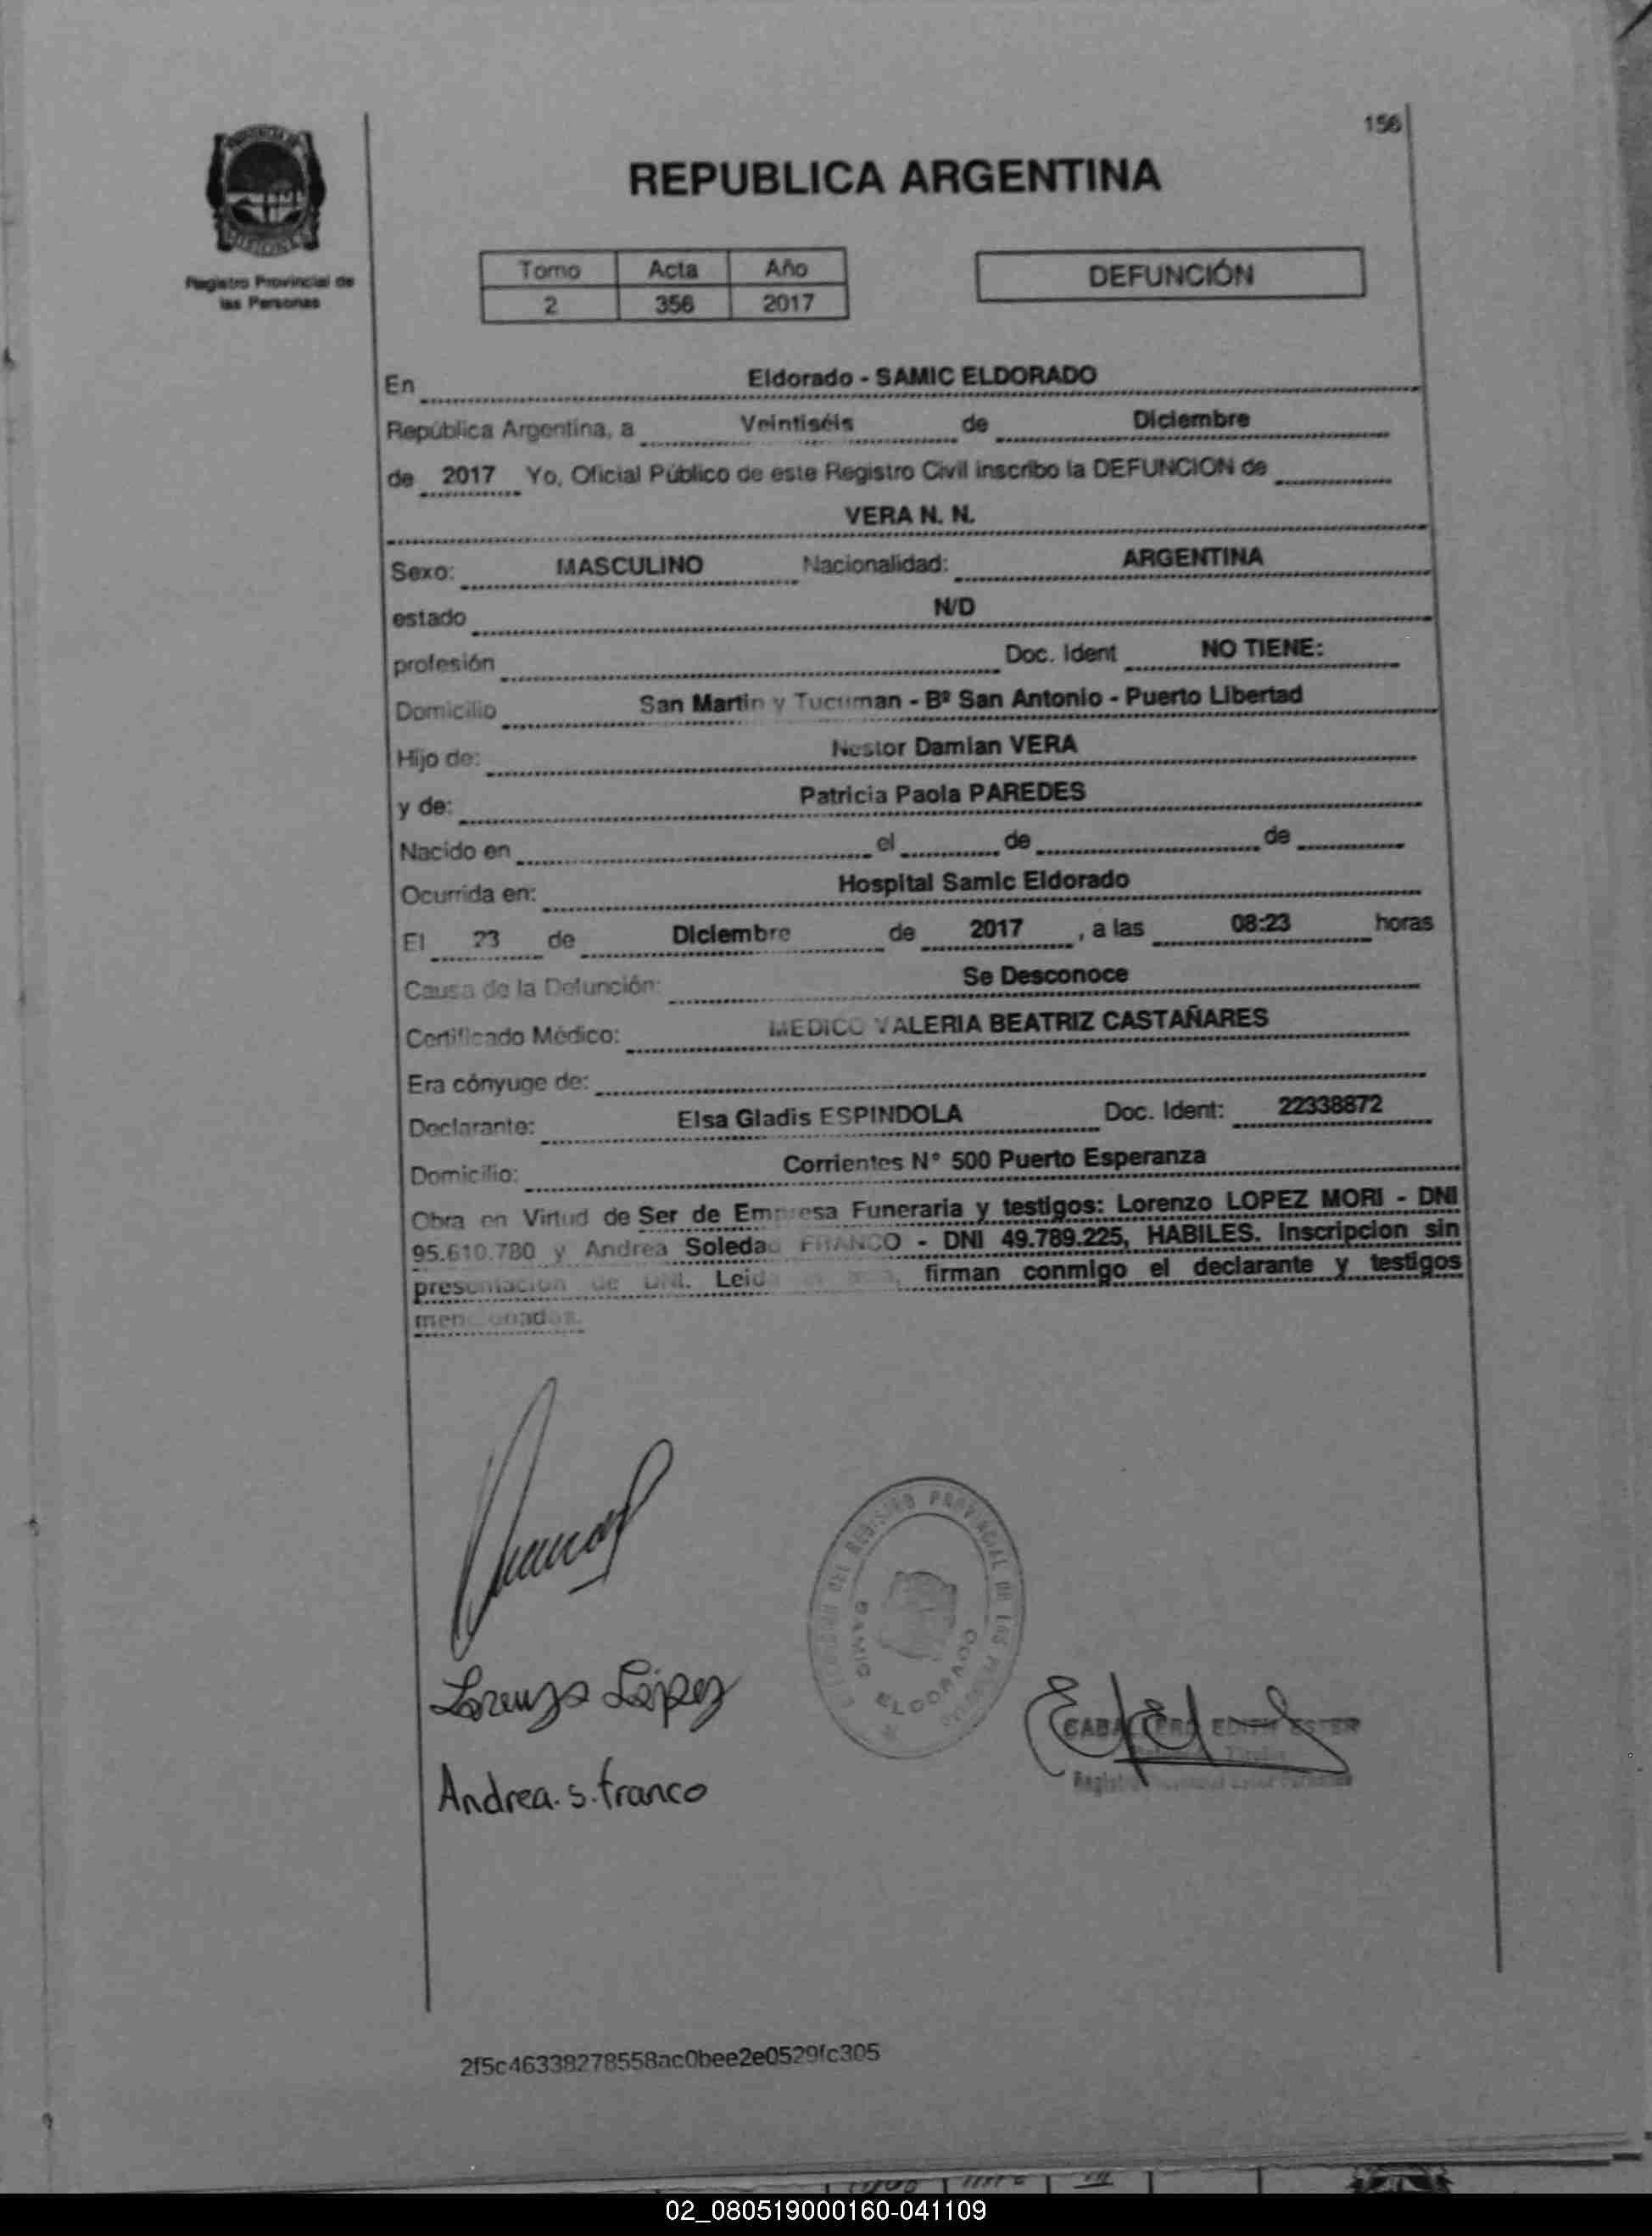 156
PROVINCIA DE
MISIONES
REPUBLICA ARGENTINA
Registro Provincial de
las Personas
Tomo Acta Año
2 356 2017
DEFUNCIÓN
En Eldorado - SAMIC ELDORADO
República Argentina, a Veintiséis de Diciembre
de 2017 Yo, Oficial Público de este Registro Civil inscribo la DEFUNCION de
VERA N. N.
Sexo: MASCULINO Nacionalidad: ARGENTINA
estado N/D
profesión Doc. Ident NO TIENE:
Domicilio San Martin y Tucuman - Bº San Antonio - Puerto Libertad
Hijo de: Nestor Damian VERA
y de: Patricia Paola PAREDES
Nacido en el de de
Ocurrida en: Hospital Samic Eldorado
El 23 de Diciembre de 2017 , a las 08:23 horas
Causa de la Defunción: Se Desconoce
Certificado Médico: MEDICO VALERIA BEATRIZ CASTAÑARES
Era cónyuge de:
Declarante: Elsa Gladis ESPINDOLA Doc. Ident: 22338872
Domicilio: Corrientes N° 500 Puerto Esperanza
Obra en Virtud de Ser de Empresa Funeraria y testigos: Lorenzo LOPEZ MORI - DNI
95.610.780 y Andrea Soledad FRANCO - DNI 49.789.225, HABILES. Inscripcion sin
presentacion de DNI. Leida firman conmigo el declarante y testigos
mencionados.
REGISTRO PROVINCIAL DE LAS
SAMIC ELDORADO
Lorenzo López
CABALLERO EDITH ESTER
Andrea. s. franco
2f5c46338278558ac0bee2e0529fc305
02_080519000160-041109